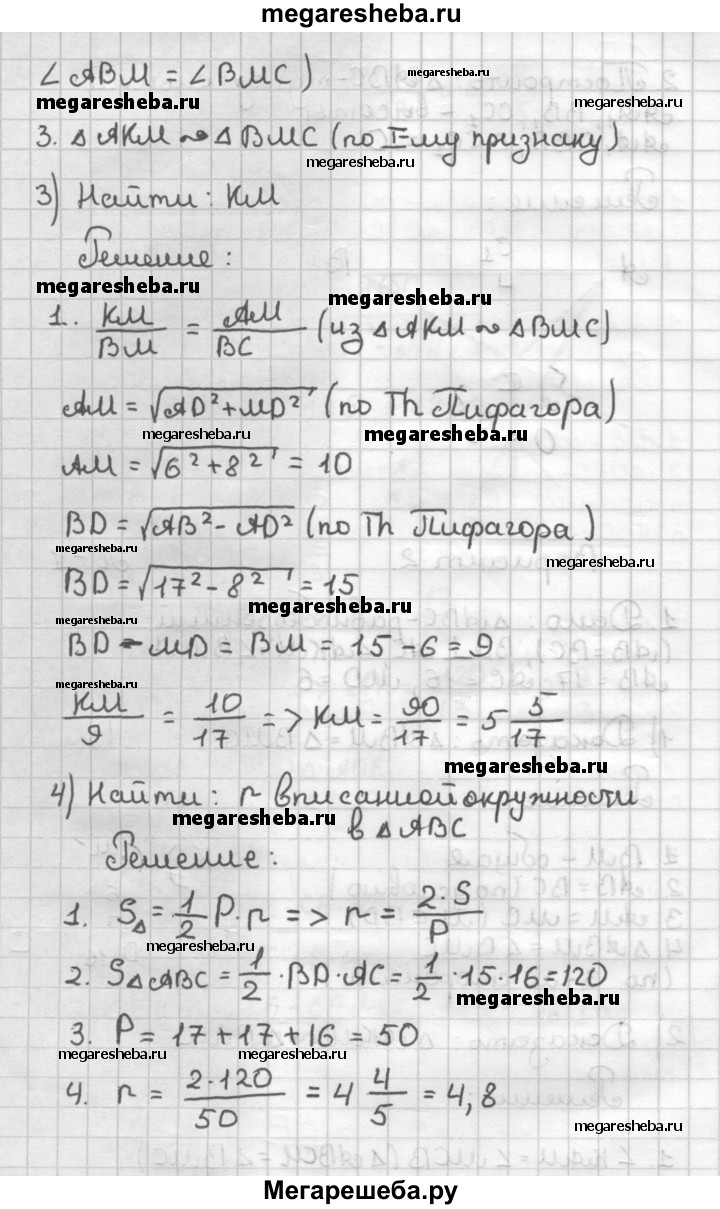 megaresheba.ru
∠ABM = ∠BMC)
megaresheba.ru
megaresheba.ru
3. △AKM ~ △BMC (по I-му признаку)
megaresheba.ru
3) Найти: KM
Решение:
megaresheba.ru
megaresheba.ru
1. KM/BM = AM/BC (из △AKM ~ △BMC)
AM = √(AD² + MD²) (по Th Пифагора)
megaresheba.ru
megaresheba.ru
AM = √(6² + 8²) = 10
BD = √(AB² - AD²) (по Th Пифагора)
megaresheba.ru
megaresheba.ru
BD = √(17² - 8²) = 15
megaresheba.ru
BD - MD = BM = 15 - 6 = 9
megaresheba.ru
KM/9 = 10/17 => KM = 90/17 = 5 5/17
megaresheba.ru
4) Найти: r вписанной окружности
megaresheba.ru
в △ABC
Решение:
1. S△ = 1/2 P · r => r = 2·S/P
megaresheba.ru
2. S△ABC = 1/2 · BD · AC = 1/2 · 15 · 16 = 120
megaresheba.ru
3. P = 17 + 17 + 16 = 50
megaresheba.ru
megaresheba.ru
4. r = 2·120/50 = 4 4/5 = 4,8
megaresheba.ru
Мегарешеба.ру